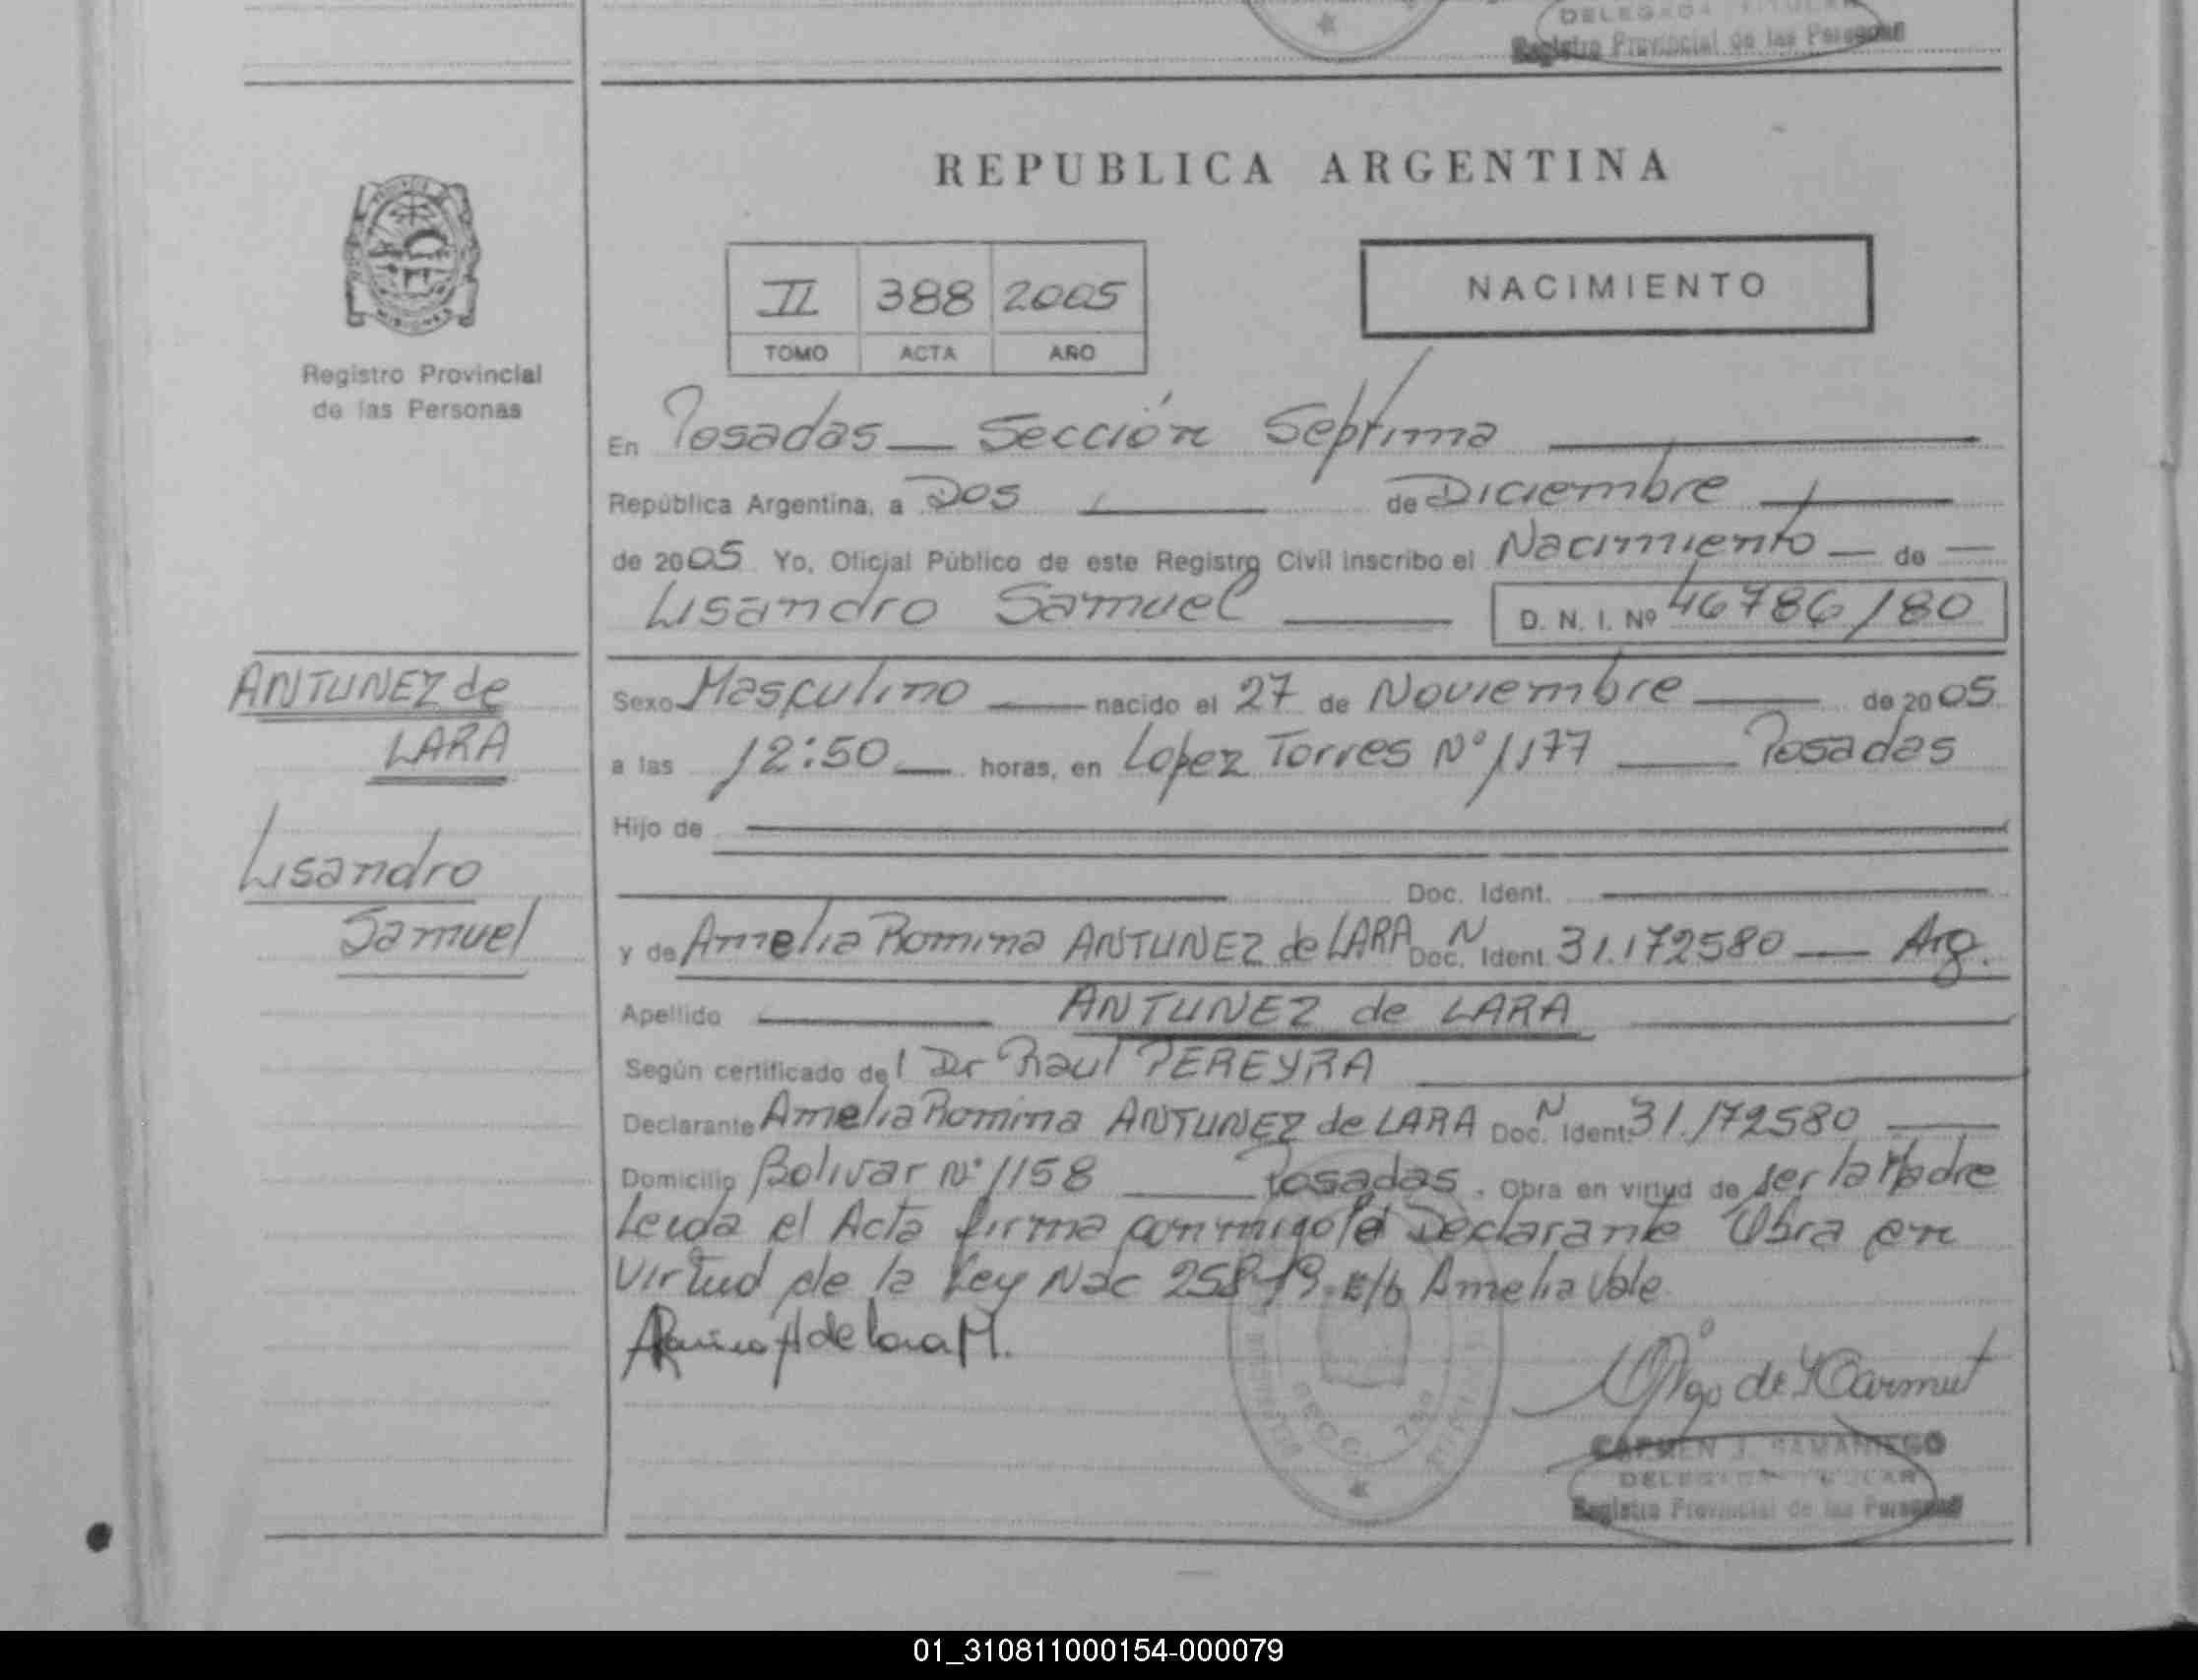 DELEGADA TITULAR
Registro Provincial de las Personas
REPUBLICA ARGENTINA
II 388 2005
TOMO ACTA AÑO
NACIMIENTO
Registro Provincial
de las Personas
En Posadas — Sección Séptima
República Argentina, a Dos de Diciembre
de 2005 Yo, Oficial Público de este Registro Civil inscribo el Nacimiento — de —
Lisandro Samuel D. N. I. Nº 46786180
ANTUNEZ de
LARA
Lisandro
Samuel
Sexo Masculino — nacido el 27 de Noviembre — de 2005
a las 12:50 — horas, en Lopez Torres Nº 1177 — Posadas
Hijo de
Doc. Ident.
y de Amelia Romina ANTUNEZ de LARA Doc. N Ident 31.172580 — Arg.
Apellido ANTUNEZ de LARA
Según certificado del Dr Raul PEREYRA
Declarante Amelia Romina ANTUNEZ de LARA Doc. N Ident 31.172580
Domicilio Bolivar Nº 1158 — Posadas. Obra en virtud de ser la Madre
Leida el Acta firma conmigo la Declarante Obra en
Virtud de la Ley Nac 25819. E/b Amelia Vale
CARMEN J. SAMANIEGO
DELEGADA TITULAR
Registro Provincial de las Personas
01_310811000154-000079